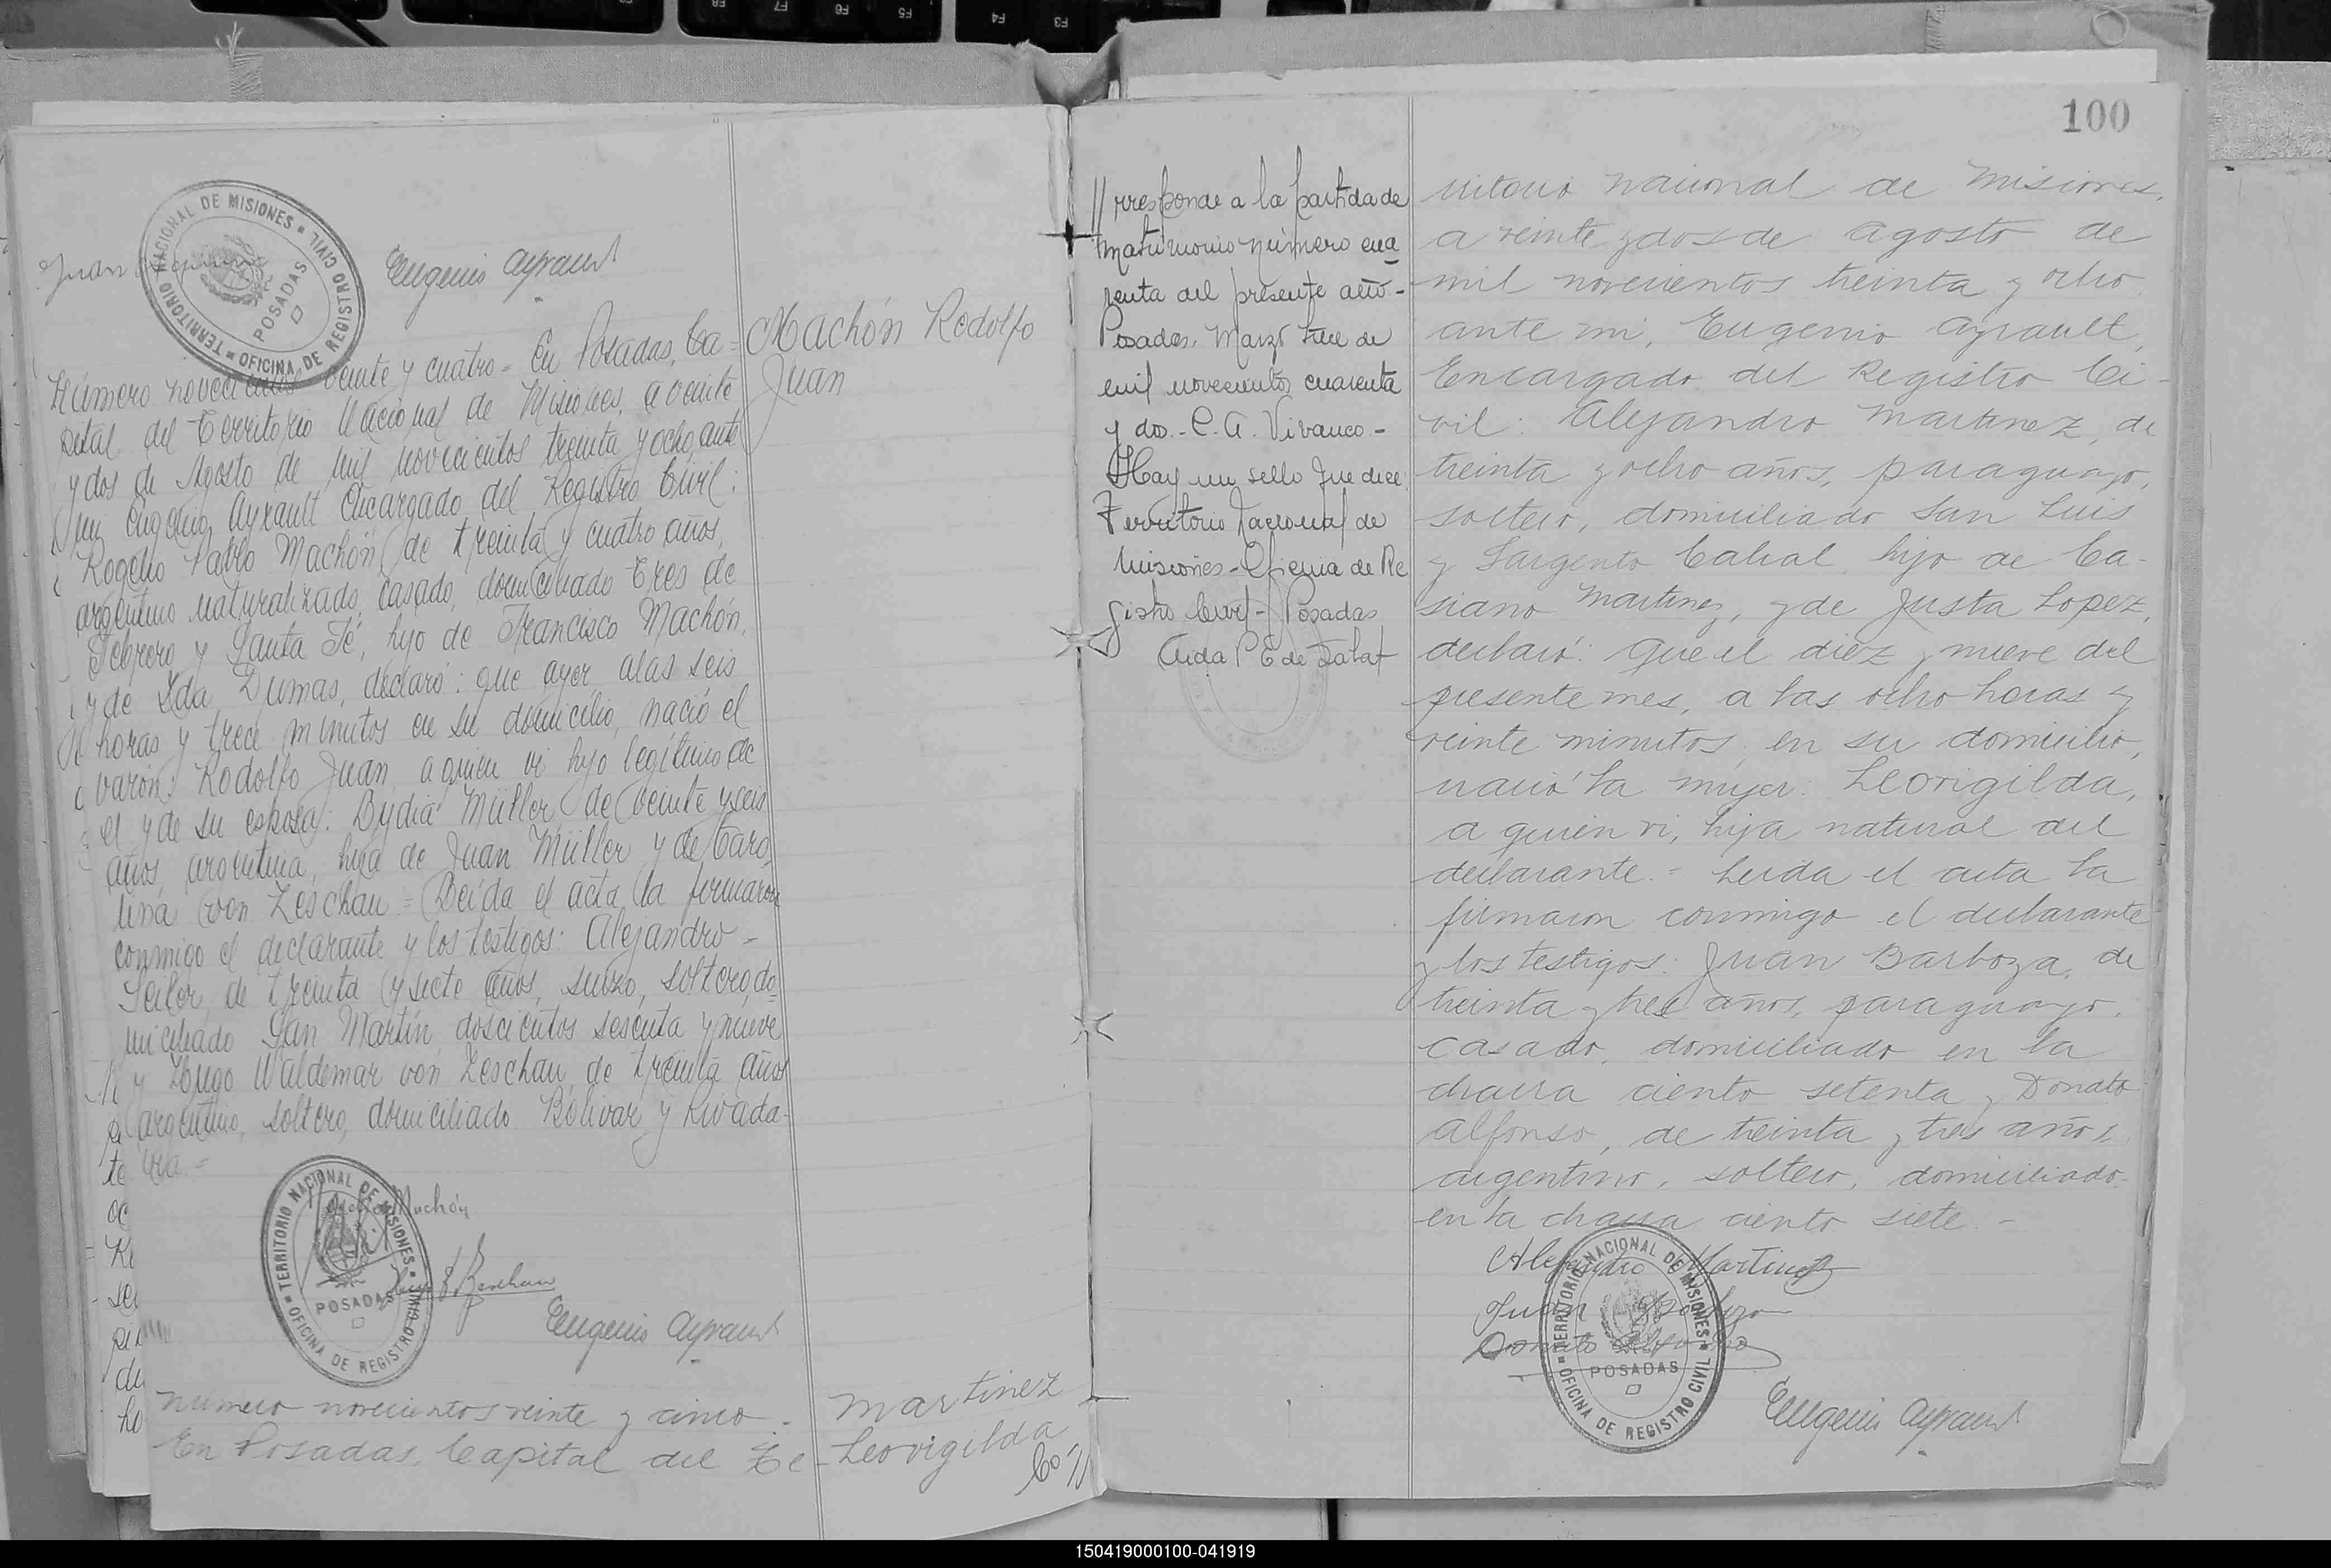 TERRITORIO NACIONAL DE MISIONES
OFICINA DE REGISTRO CIVIL
POSADAS
Juan
Eugenio Ayrault
Machón Rodolfo
Juan
Número novecientos veinte y cuatro = En Posadas, Ca=
pital del Territorio Nacional de Misiones, a veinte
y dos de Agosto de mil novecientos treinta y ocho, ante
mi Eugenio Ayrault Encargado del Registro Civil:
Rogelio Pablo Machón de treinta y cuatro años,
argentino naturalizado, casado, domiciliado Tres de
Febrero y Santa Fé, hijo de Francisco Machón,
y de Ida Dumas, declaró: que ayer a las seis
horas y trece minutos en su domicilio, nació el
varón: Rodolfo Juan, a quien vi hijo legítimo de
el y de su esposa: Lydia Müller de veinte y seis
años, argentina, hija de Juan Müller y de Caro
lina von Zeschau = Leída el acta la firmaron
conmigo el declarante y los testigos: Alejandro =
Seiler, de treinta y siete años, suizo, soltero, do=
miciliado San Martín doscientos sesenta y nueve
y Hugo Waldemar von Zeschau de treinta años
argentino, soltero, domiciliado Bolivar y Rivada-
via =
Machón
TERRITORIO NACIONAL DE MISIONES
OFICINA DE REGISTRO CIVIL
POSADAS
Eugenio Ayrault
Martinez
Leovigilda
Co//
Número novecientos veinte y cinco.-
En Posadas, Capital del Te-
100
//rresponde a la partida de
matrimonio número cua
renta del presente año.-
Posadas, Marzo trece de
mil novecientos cuarenta
y dos.- C. A. Vivanco.-
Hay un sello que dice:
Territorio Nacional de
Misiones - Oficina de Re
gistro Civil - Posadas
Aida P E de
rritorio nacional de Misiones,
a veinte y dos de agosto de
mil novecientos treinta y ocho
ante mi, Eugenio Ayrault,
Encargado del Registro Ci-
vil: Alejandro Martinez, de
treinta y ocho años, paraguayo,
soltero, domiciliado San Luis
y Sargento Cabral, hijo de Ca-
siano Martinez, y de Justa Lopez,
declaró: Que el diez y nueve del
presente mes, a las ocho horas y
veinte minutos, en su domicilio,
nació la mujer: Leovigilda,
a quien vi, hija natural del
declarante.- Leida el acta la
firmaron conmigo el declarante
y los testigos: Juan Barboza, de
treinta y tres años, paraguayo,
casado, domiciliado en la
chacra ciento setenta y Donato
Alfonso, de treinta y tres años,
argentino, soltero, domiciliado
en la chacra ciento siete.-
Alejandro Martinez
Juan Barboza
Donato Alfonso
TERRITORIO NACIONAL DE MISIONES
OFICINA DE REGISTRO CIVIL
POSADAS
Eugenio Ayrault
150419000100-041919